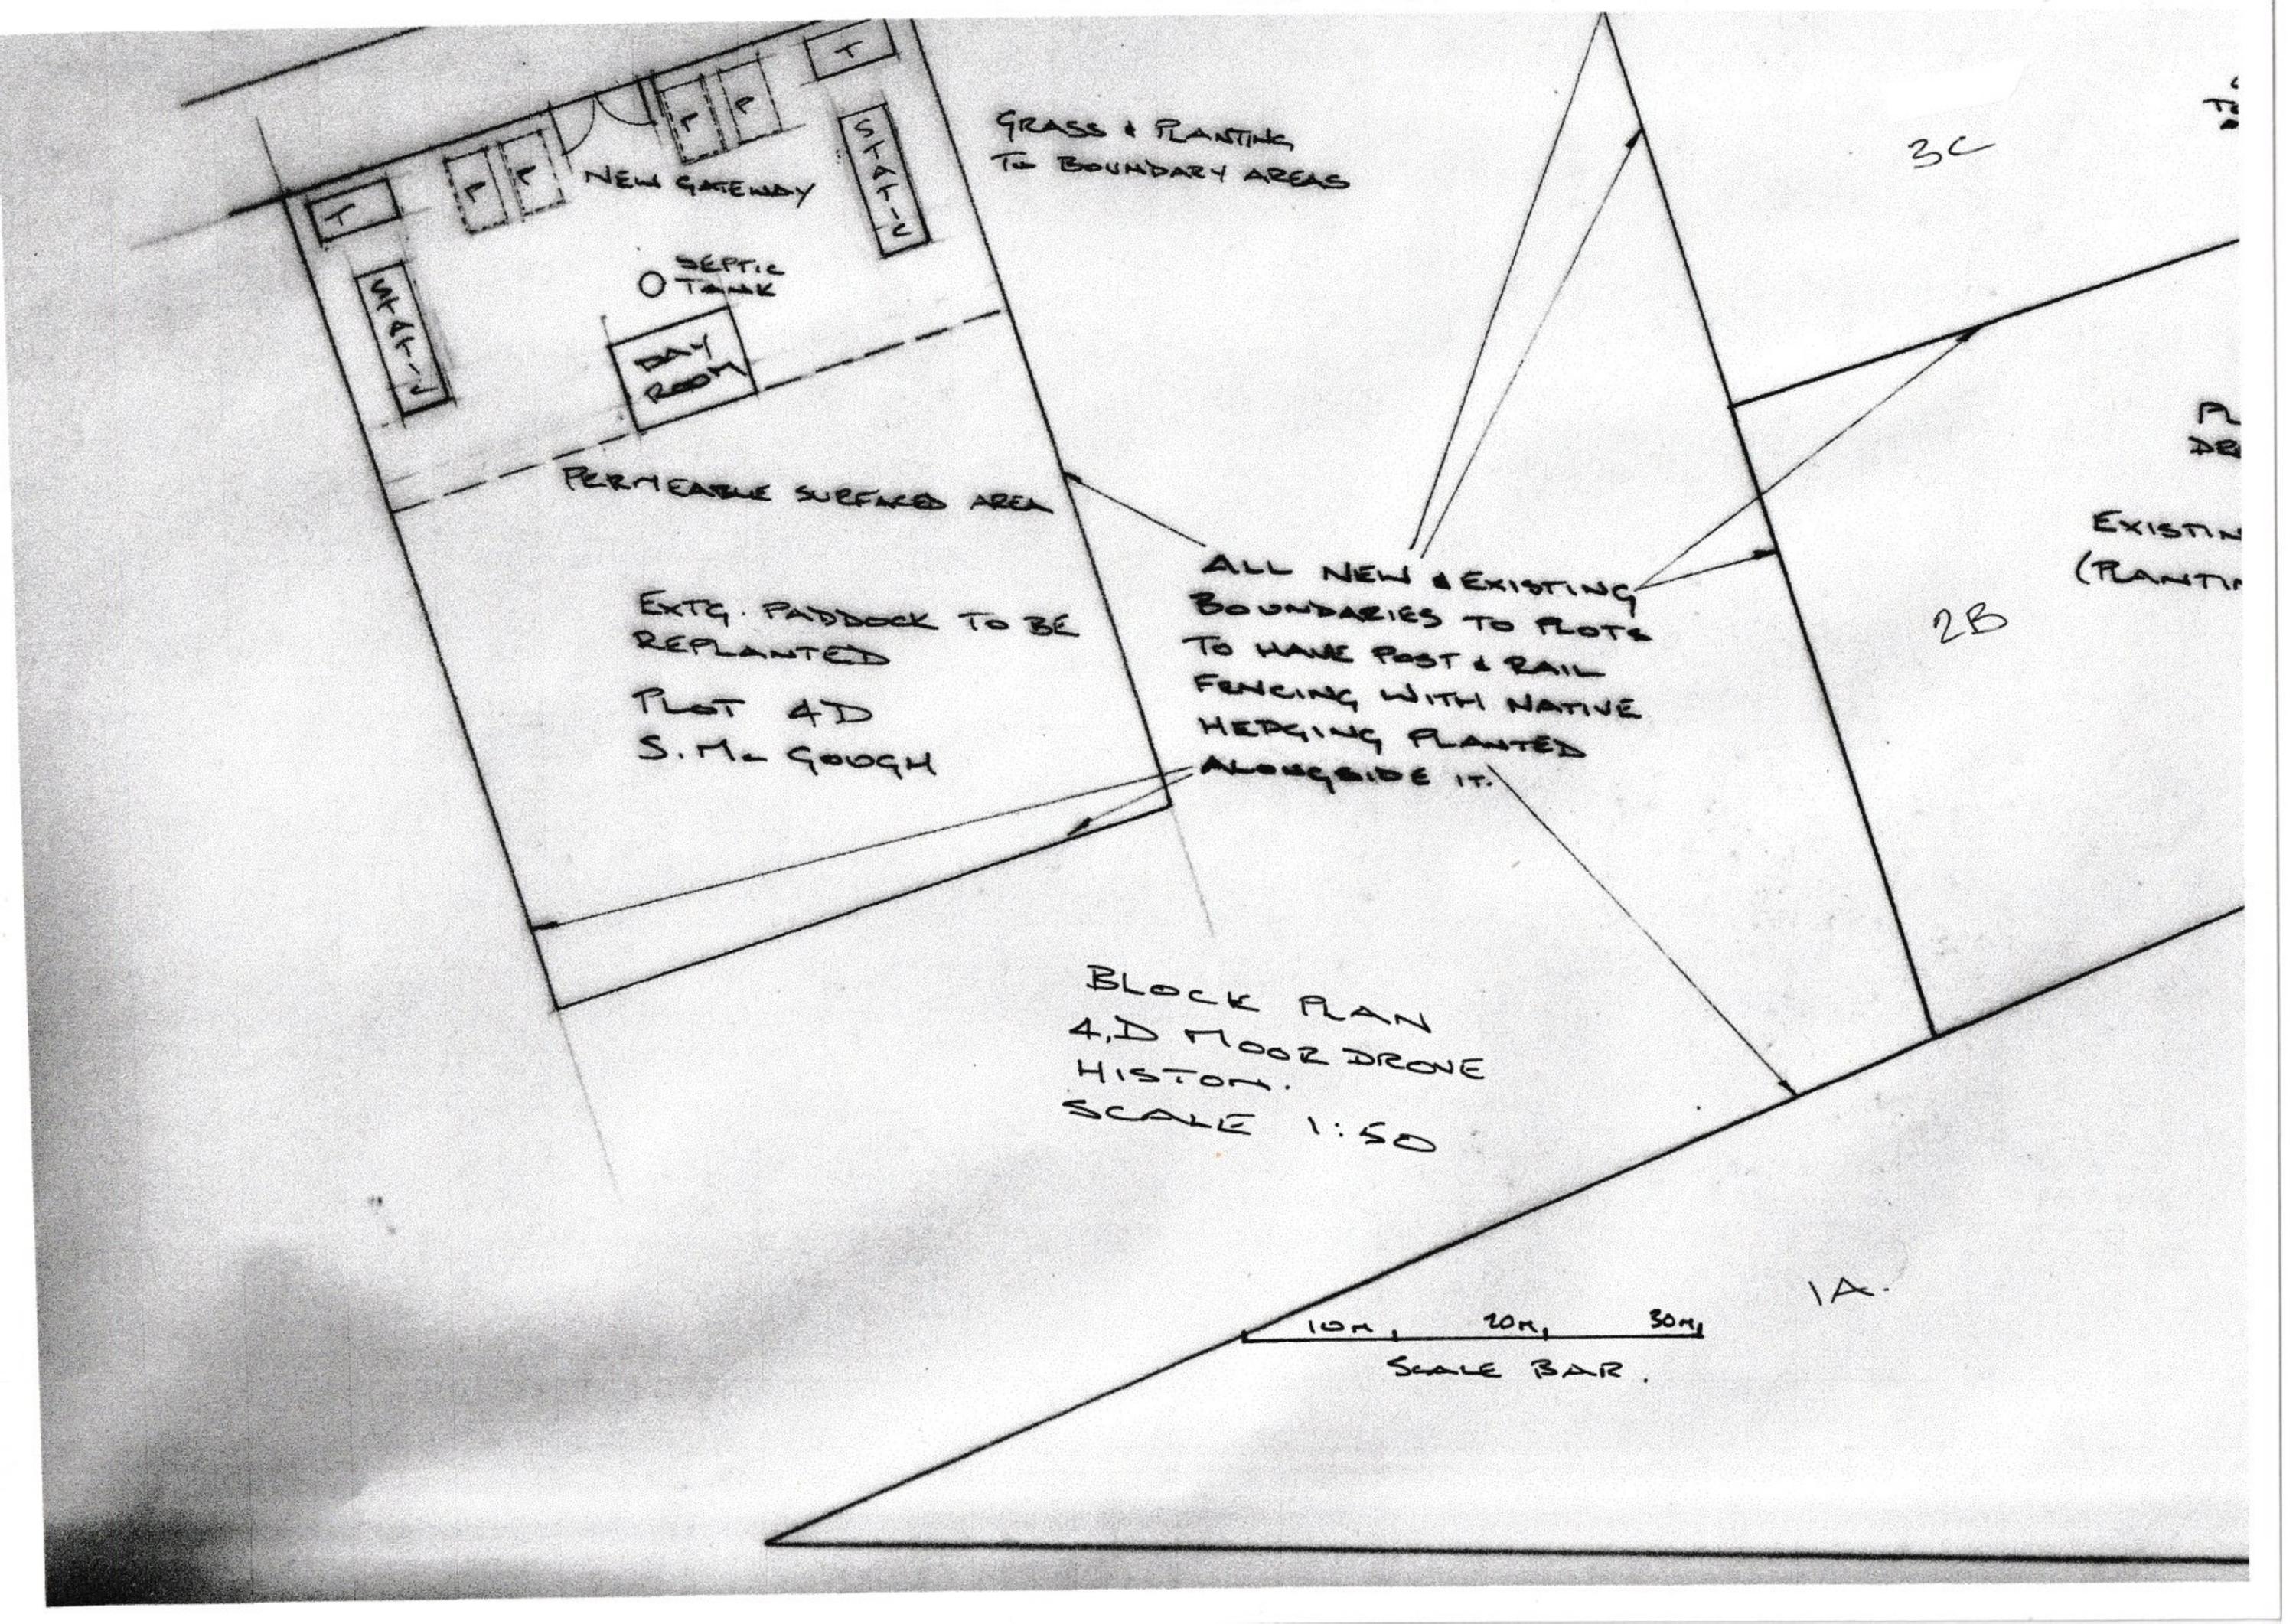 T
P
P
NEW GATEWAY
P
P
T
STATIC
STATIC
SEPTIC
TANK
DAY
ROOM
PERMEABLE SURFACED AREA
EXTG. PADDOCK TO BE
REPLANTED
PLOT 4D
S. Mc GOUGH
GRASS & PLANTING
TO BOUNDARY AREAS
ALL NEW & EXISTING
BOUNDARIES TO PLOTS
TO HAVE POST & RAIL
FENCING WITH NATIVE
HEDGING PLANTED
ALONGSIDE IT.
3C
PL
DR
EXISTIN
(PLANTIN
2B
BLOCK PLAN
4.D MOOR DROVE
HISTON.
SCALE 1:50
1A.
10M 20M 30M
SCALE BAR.